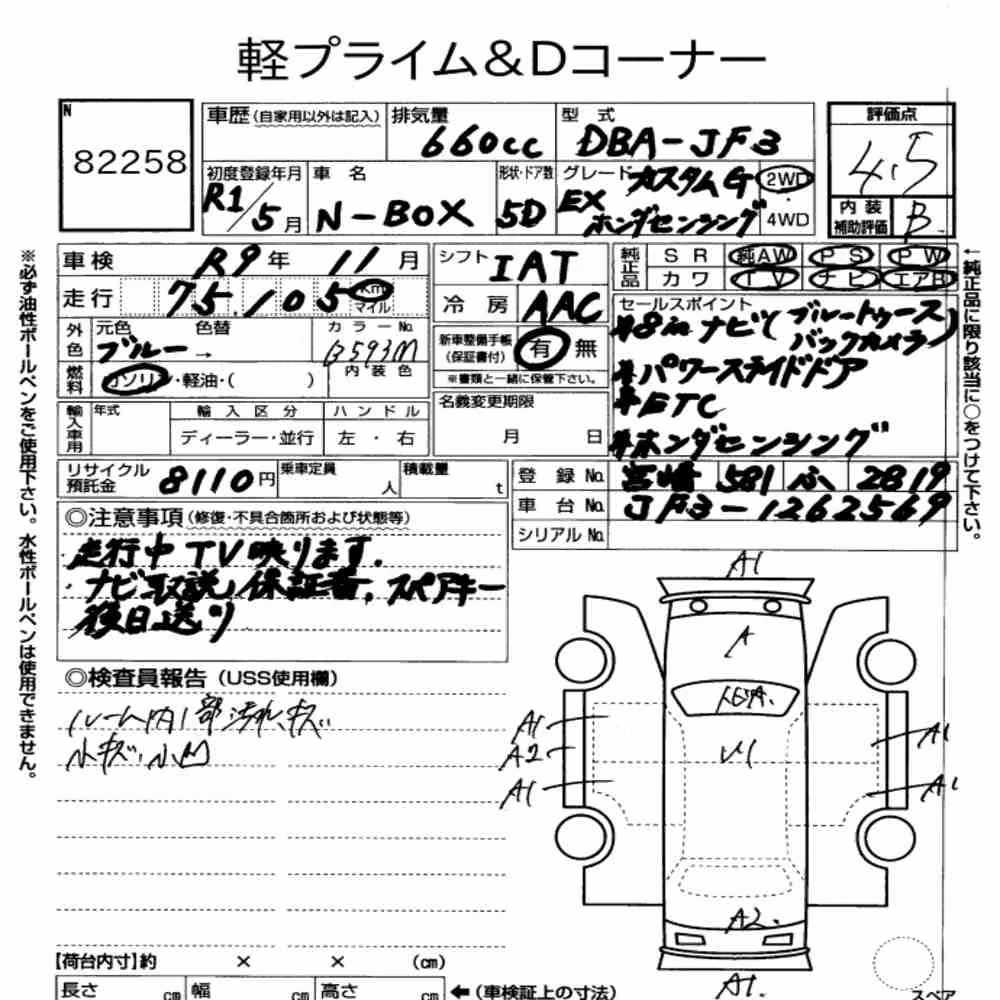 軽プライム&Dコーナー
N
82258
車歴(自家用以外は記入)
排気量
660cc
型式
DBA-JF3
評価点
4.5
初度登録年月
R1/5月
車名
N-BOX
形状・ドア数
5D
グレード
EX カスタムG
ホンダセンシング
2WD
4WD
内装
補助評価
B
車検 R9年 11月
走行 75,105 Km
マイル
シフト IAT
冷房 AAC
純正品
SR 純AW PS PW
カワ TV ナビ エアB
外色
元色 色替
ブルー→
カラーNo.
B593M
内装色
燃料
ガソリン・軽油・( )
新車整備手帳
(保証書付)
有 無
※書類と一緒に保管下さい。
セールスポイント
#8inナビ(ブルートゥース
バックカメラ)
#パワースライドドア
#ETC
#ホンダセンシング
輸入車用
年式
輸入区分
ディーラー・並行
ハンドル
左・右
名義変更期限
月 日
リサイクル
預託金
8110円
乗車定員
人
積載量
t
登録No. 宮崎 581 ふ 2819
車台No. JF3-1262569
シリアルNo.
◎注意事項(修復・不具合箇所および状態等)
走行中TV映ります.
・ナビ取説,保証書,スペアキー
後日送り
◎検査員報告(USS使用欄)
ルーム内1部汚れ、キズ
小キズ・小凹
A1
A
トビA.
A1
A2
A1
U1
A1
A1
A2.
A1.
【荷台内寸】約 × × (cm)
長さ cm 幅 cm 高さ cm
←(車検証上の寸法)
スペア
※必ず油性ボールペンをご使用下さい。水性ボールペンは使用できません。
←純正品に限り該当に○をつけて下さい。